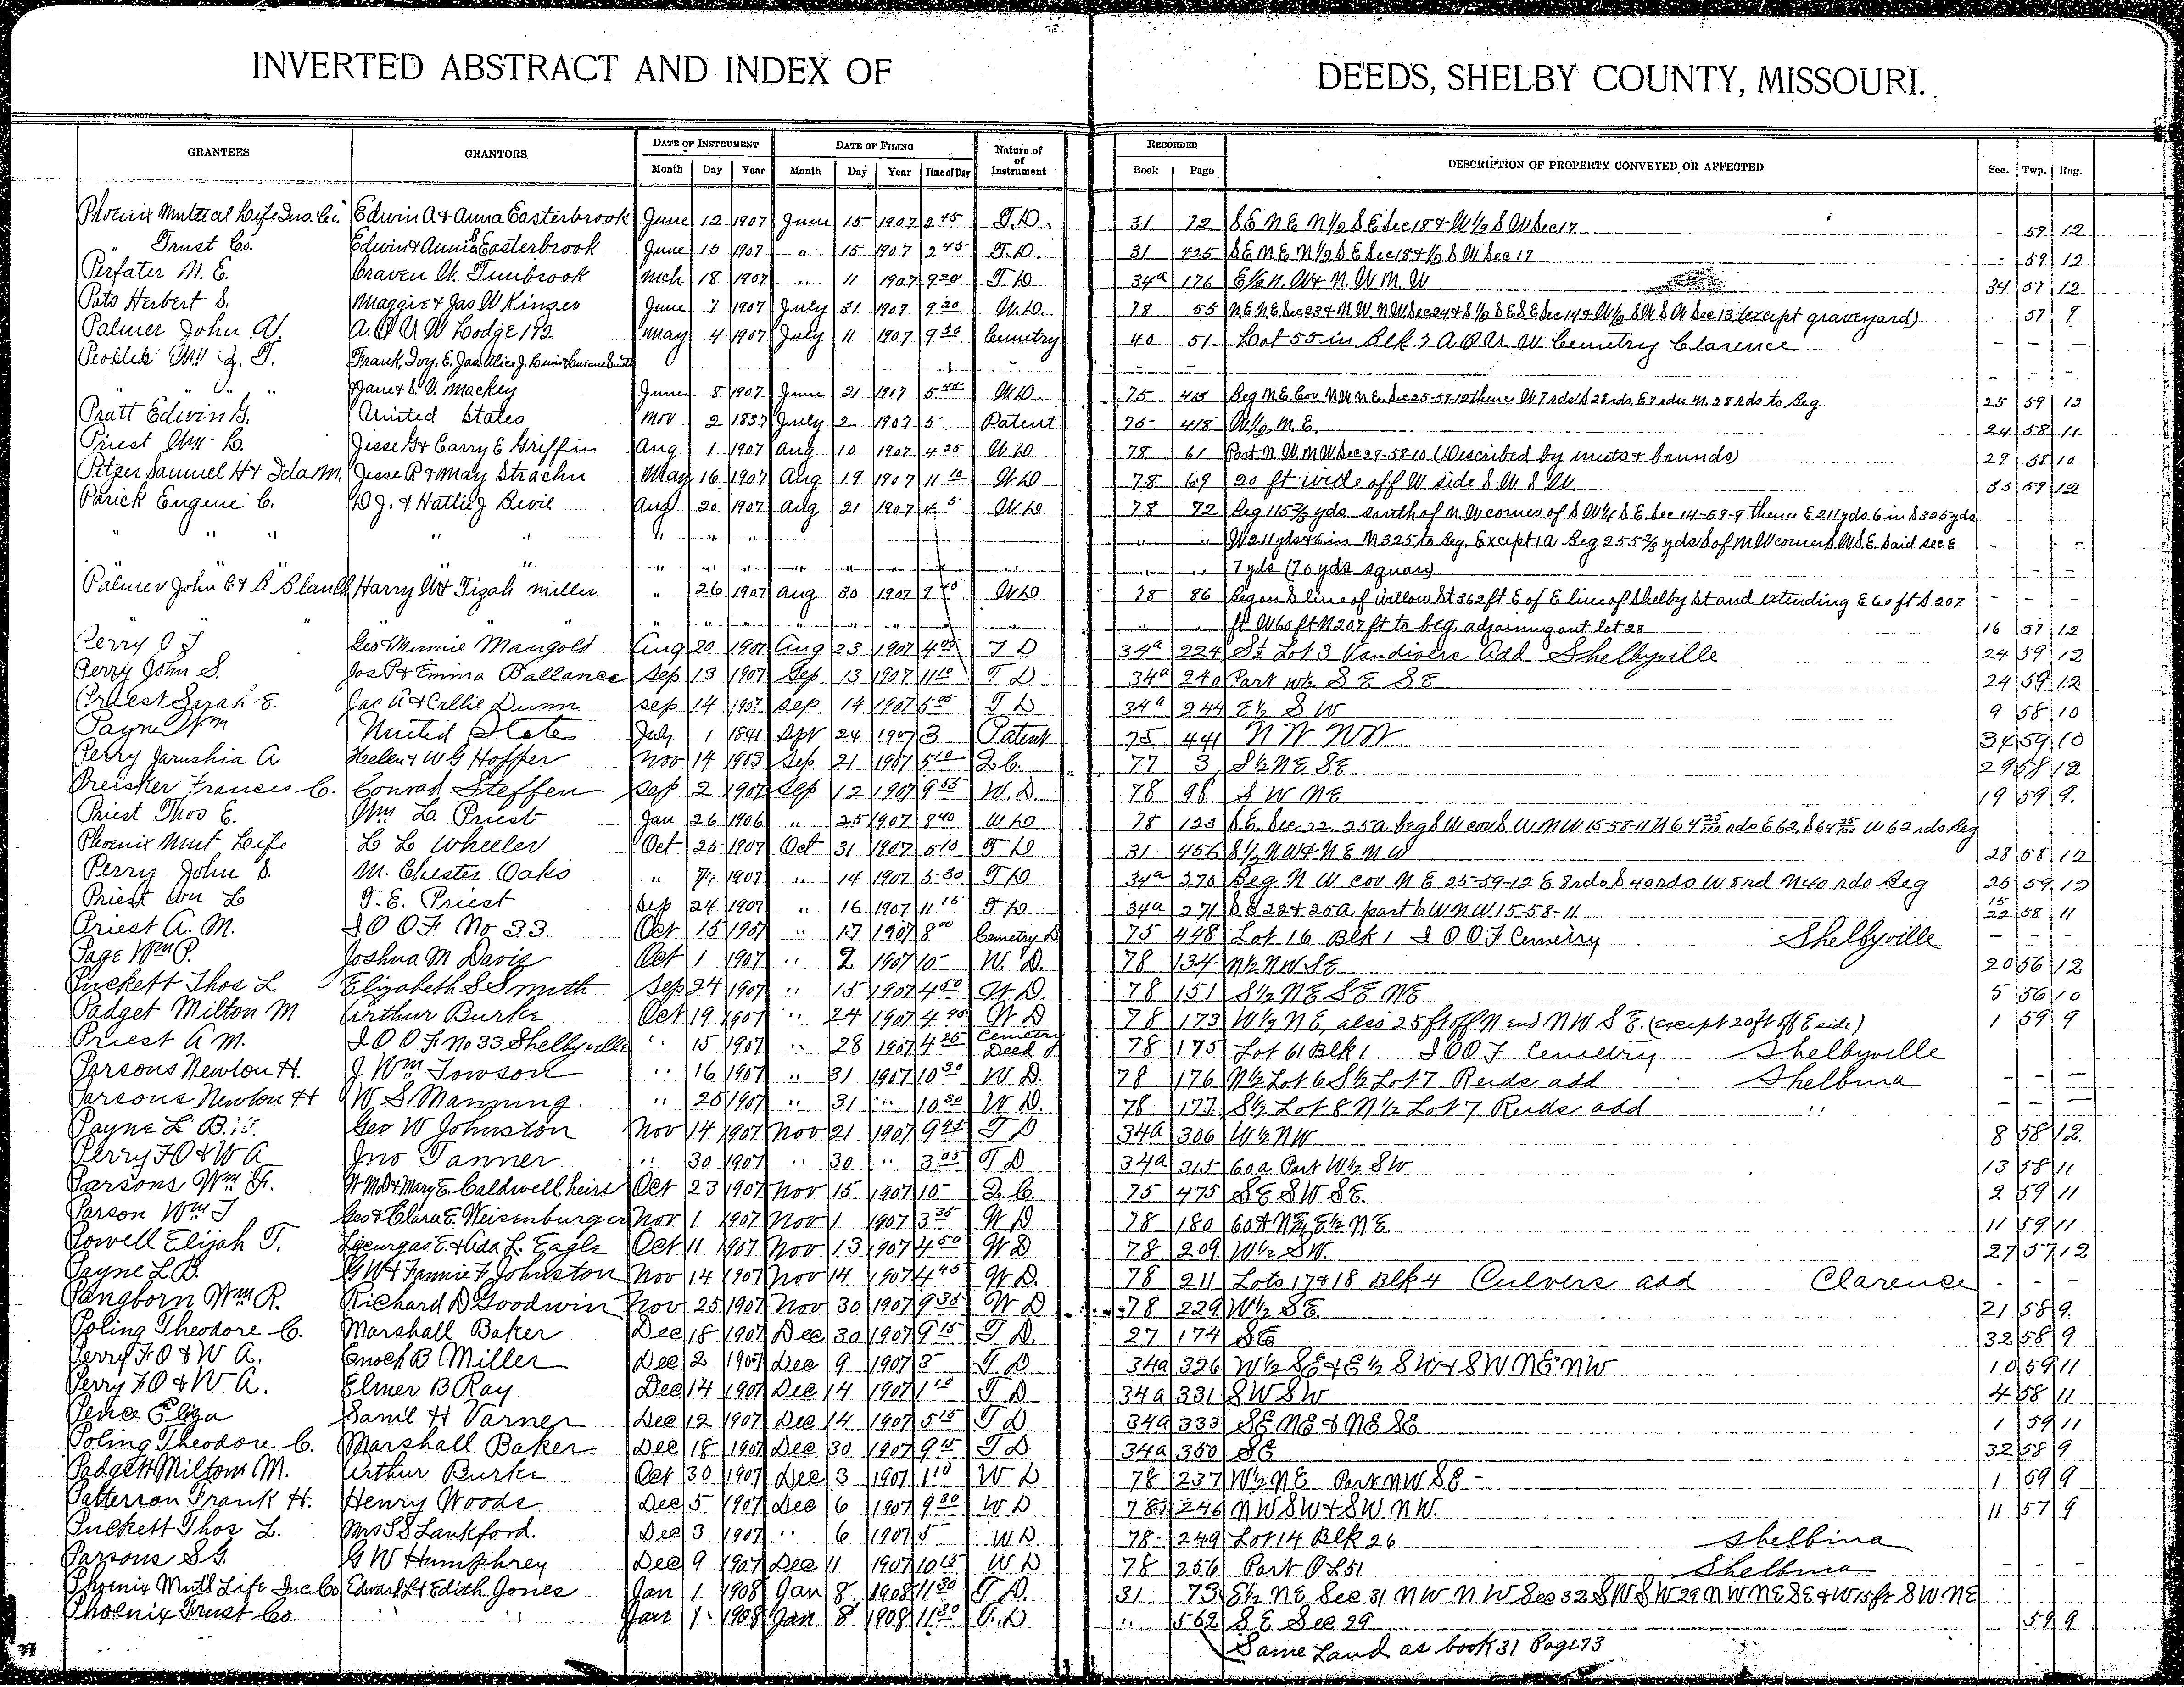 INVERTED ABSTRACT AND INDEX OF DEEDS, SHELBY COUNTY, MISSOURI.
GRANTEES GRANTORS DATE OF INSTRUMENT DATE OF FILING Nature of Instrument RECORDED DESCRIPTION OF PROPERTY CONVEYED OR AFFECTED Sec. Twp. Rng.
Month Day Year Month Day Year Time of Day Book Page
Phoenix Mutual Life Ins. Co. Edwin A & Anna Easterbrook June 12 1907 June 15 1907 2 45 T.D. 31 72 S E N E N 1/2 S E Sec 18 & W 1/2 S W Sec 17 - 59 12
" Trust Co. Edwin & Annie Easterbrook June 10 1907 " 15 1907 2 45 T.D. 31 425 S E N E N 1/2 S E Sec 18 & 1/2 S W Sec 17 - 59 12
Perfater M. E. Craven W. Timbrook Mch 18 1907 " 11 1907 9 20 T D 34a 176 E 1/2 N. W & N. W N. W 34 57 12
Pots Herbert S. Maggie & Jas W Kinzer June 7 1907 July 31 1907 9 20 W.D. 78 55 N E N E Sec 23 & N. W. N W Sec 24 & S 1/2 S E S E Sec 14 & W 1/2 S W S W Sec 13 (except graveyard) 57 9
Palmer John W. A.O U W Lodge 172 May 4 1907 July 11 1907 9 30 Cemetry 40 51 Lot 55 in Blk 3 A O U W Cemetry Clarence - - -
Peoples Wm Z. T. Frank, Ivy, E. Jas. Alice J. Smith - - -
" " " " Jane & S. V. Mackey June 8 1907 June 21 1907 5 45 W.D. 75 415 Beg N E Cor. N W N E. Sec 25-59-12 thence W 7 rds S 28 rds. E 7 rds N. 28 rds to Beg 25 59 12
Pratt Edwin G. United States Nov 2 1837 July 2 1907 5 - Patent 75 418 W 1/2 N E. 24 58 11
Priest Wm. L. Jesse G & Carry E Griffin Aug 1 1907 Aug 10 1907 4 25 W D 78 61 Part N. W N W Sec 29-58-10 (Described by meets & bounds) 29 58 10
Pitzer Samuel H & Ida M. Jesse P & May Strachn May 16 1907 Aug 19 1907 11 10 W D 78 69 20 ft wide off W side S W. S W. 35 59 12
Parick Eugene C. D J. & Hattie J Bivil Aug 20 1907 Aug 21 1907 4 5 W D 78 72 Beg 115 2/3 yds south of N. W corner of S W 1/4 S E. Sec 14-59-9 thence E 211 yds. 6 in S 325 yds
" " " " " " " " " " W 211 yds & 6 in N 325 to Beg. Except 1 A Beg 255 2/3 yds S of N W corner S W S. E. Said Sec E - - -
" " " " " " " " " " 7 yds (70 yds square) - - -
Palmer John E & B Blanch Harry W & Tizah Miller " 26 1907 Aug 30 1907 9 40 W D 78 86 Beg on S line of Willow St 362 ft E of E line of Shelby St and extending E 60 ft S 207 - - -
" " " " " " " " " ft W 60 ft N 207 ft to beg. adjoining out lot 28 16 57 12
Perry O J Geo & Minnie Mangold Aug 20 1907 Aug 23 1907 4 05 T D 34a 224 S 1/2 Lot 3 Vandivers Add Shelbyville 24 59 12
Perry John S. Jos P & Emma Ballance Sep 13 1907 Sep 13 1907 11 10 T D 34a 240 Part W 1/2 S E S E 24 59 12
Priest Sarah E. Jas A & Callie Dunn Sep 14 1907 Sep 14 1907 5 05 T D 34a 244 E 1/2 S W 9 58 10
Payne Wm United State July 1 1841 Sept 24 1907 3 Patent 75 441 N W N W 34 59 10
Perry Jarushia A Helen & W G Hopper Nov 14 1903 Sep 21 1907 5 10 Q.C. 77 3 S 1/2 N E S E 29 58 12
Preisker Frances C. Conrad Steffen Sep 2 1907 Sep 12 1907 9 35 W. D 78 98 S W N E 19 59 9.
Priest Thos E. Wm L. Priest Jan 26 1906 " 25 1907 8 40 W D 78 123 S. E. Sec 22. 25 A beg S W cor S W N W 15-58-11 N 64 25/100 rds E 62, S 64 25/100 W 62 rds Beg
Phoenix Mut Life L L Wheeler Oct 25 1907 Oct 31 1907 5 10 T D 31 456 S 1/2 N W & N E N W 28 58 12
Perry John S. M. Chester Oaks " 7 1907 " 14 1907 5 30 T D 34a 270 Beg N W cor N E 25-59-12 E 8 rds S 40 rds W 8 rd N 40 rds Beg 26 59 12
Priest Wm L T. E. Priest Sep 24 1907 " 16 1907 11 15 T D 34a 271 S E 22 & 25 A part S W N W 15-58-11 15 22 58 11
Priest A. M. I O O F No 33. Oct 15 1907 " 17 1907 8 00 Cemetry D 75 448 Lot 16 Blk 1 I O O F Cemetry Shelbyville - - -
Page Wm P. Joshua M Davis Oct 1 1907 " 2 1907 10 - W. D. 78 134 N 1/2 N W S E 20 56 12
Puckett Thos L Elizabeth S Smith Sep 24 1907 " 15 1907 4 50 W D. 78 151 S 1/2 N E S E N E 5 56 10
Padget Milton M Arthur Burke Oct 19 1907 " 24 1907 4 45 W D 78 173 W 1/2 N E, also 25 ft off N end N W S E. (except 20 ft off E side.) 1 59 9
Priest A M. I O O F No 33 Shelbyville " 15 1907 " 28 1907 4 25 Cemetry Deed 78 175 Lot 61 Blk 1 I O O F Cemetry Shelbyville
Parsons Newton H. J Wm Towson " 16 1907 " 31 1907 10 30 W D. 78 176 N 1/2 Lot 6 S 1/2 Lot 7 Reids add Shelbina - - -
Parsons Newton H W. S Manning. " 25 1907 " 31 " 10 30 W D. 78 177 S 1/2 Lot 8 N 1/2 Lot 7 Reids add " - - -
Payne L B. Geo W Johnston Nov 14 1907 Nov 21 1907 9 45 T D 34a 306 W 1/2 N W 8 58 12.
Perry F O & W A Jno Tanner " 30 1907 " 30 " 3 05 T D 34a 315 60 a Part W 1/2 S W 13 58 11
Parsons Wm F. W M D & Mary E. Caldwell, heirs Oct 23 1907 Nov 15 1907 10 - Q. C. 75 475 S E S W S E. 2 59 11
Parson Wm T Geo & Clara E. Weisenburger Nov 1 1907 Nov 1 1907 3 35 W D 78 180 60 A N E, E 1/2 N E 11 59 11
Powell Elijah T. Licurgas E. & Ada L. Eagle Oct 11 1907 Nov 13 1907 4 50 W D 78 209 W 1/2 S W. 27 57 12
Payne L B. G W & Fannie F Johnston Nov 14 1907 Nov 14 1907 4 45 W D. 78 211 Lots 17 & 18 Blk 4 Culvers add Clarence - - -
Pangborn Wm R. Richard D Goodwin Nov 25 1907 Nov 30 1907 9 35 W D 78 229 W 1/2 S E. 21 58 9.
Poling Theodore C. Marshall Baker Dec 18 1907 Dec 30 1907 9 15 T D. 27 174 S E 32 58 9
Perry F O & W A. Enoch B Miller Dec 2 1907 Dec 9 1907 3 - T D 34a 326 W 1/2 S E & E 1/2 S W & S W N E N W 10 59 11
Perry F O & W A. Elmer B Ray Dec 14 1907 Dec 14 1907 1 10 T D 34a 331 S W S W 4 58 11
Pence Eliza Saml H Varner Dec 12 1907 Dec 14 1907 5 15 T D 34a 333 S E N E & N E S E 1 59 11
Poling Theodore C. Marshall Baker Dec 18 1907 Dec 30 1907 9 15 T D. 34a 350 S E 32 58 9
Padgett Milton M. Arthur Burke Oct 30 1907 Dec 3 1907 1 10 W D 78 237 W 1/2 N E Part N W S E - 1 59 9
Patterson Frank H. Henry Woods Dec 5 1907 Dec 6 1907 9 30 W D 78 246 N W S W & S W N W. 11 57 9
Puckett Thos L. Mrs S S Lankford. Dec 3 1907 " 6 1907 5 - W D. 78 249 Lot 14 Blk 26 Shelbina
Parsons S G. G W Humphrey Dec 9 1907 Dec 11 1907 10 15 W D 78 256 Part O L 51 Shelbina - - -
Phoenix Mut'l Life Inc Co Edward L & Edith Jones Jan 1 1908 Jan 8 1908 11 30 T. D. 31 73 E 1/2 N E Sec 31 N W N W Sec 32 S W S W 29 N W N E S E & W 15 ft S W N E
Phoenix Trust Co. " " Jan 1 1908 Jan 8 1908 11 30 T. D " 562 S E Sec 29 59 9
Same Land as book 31 Page 73